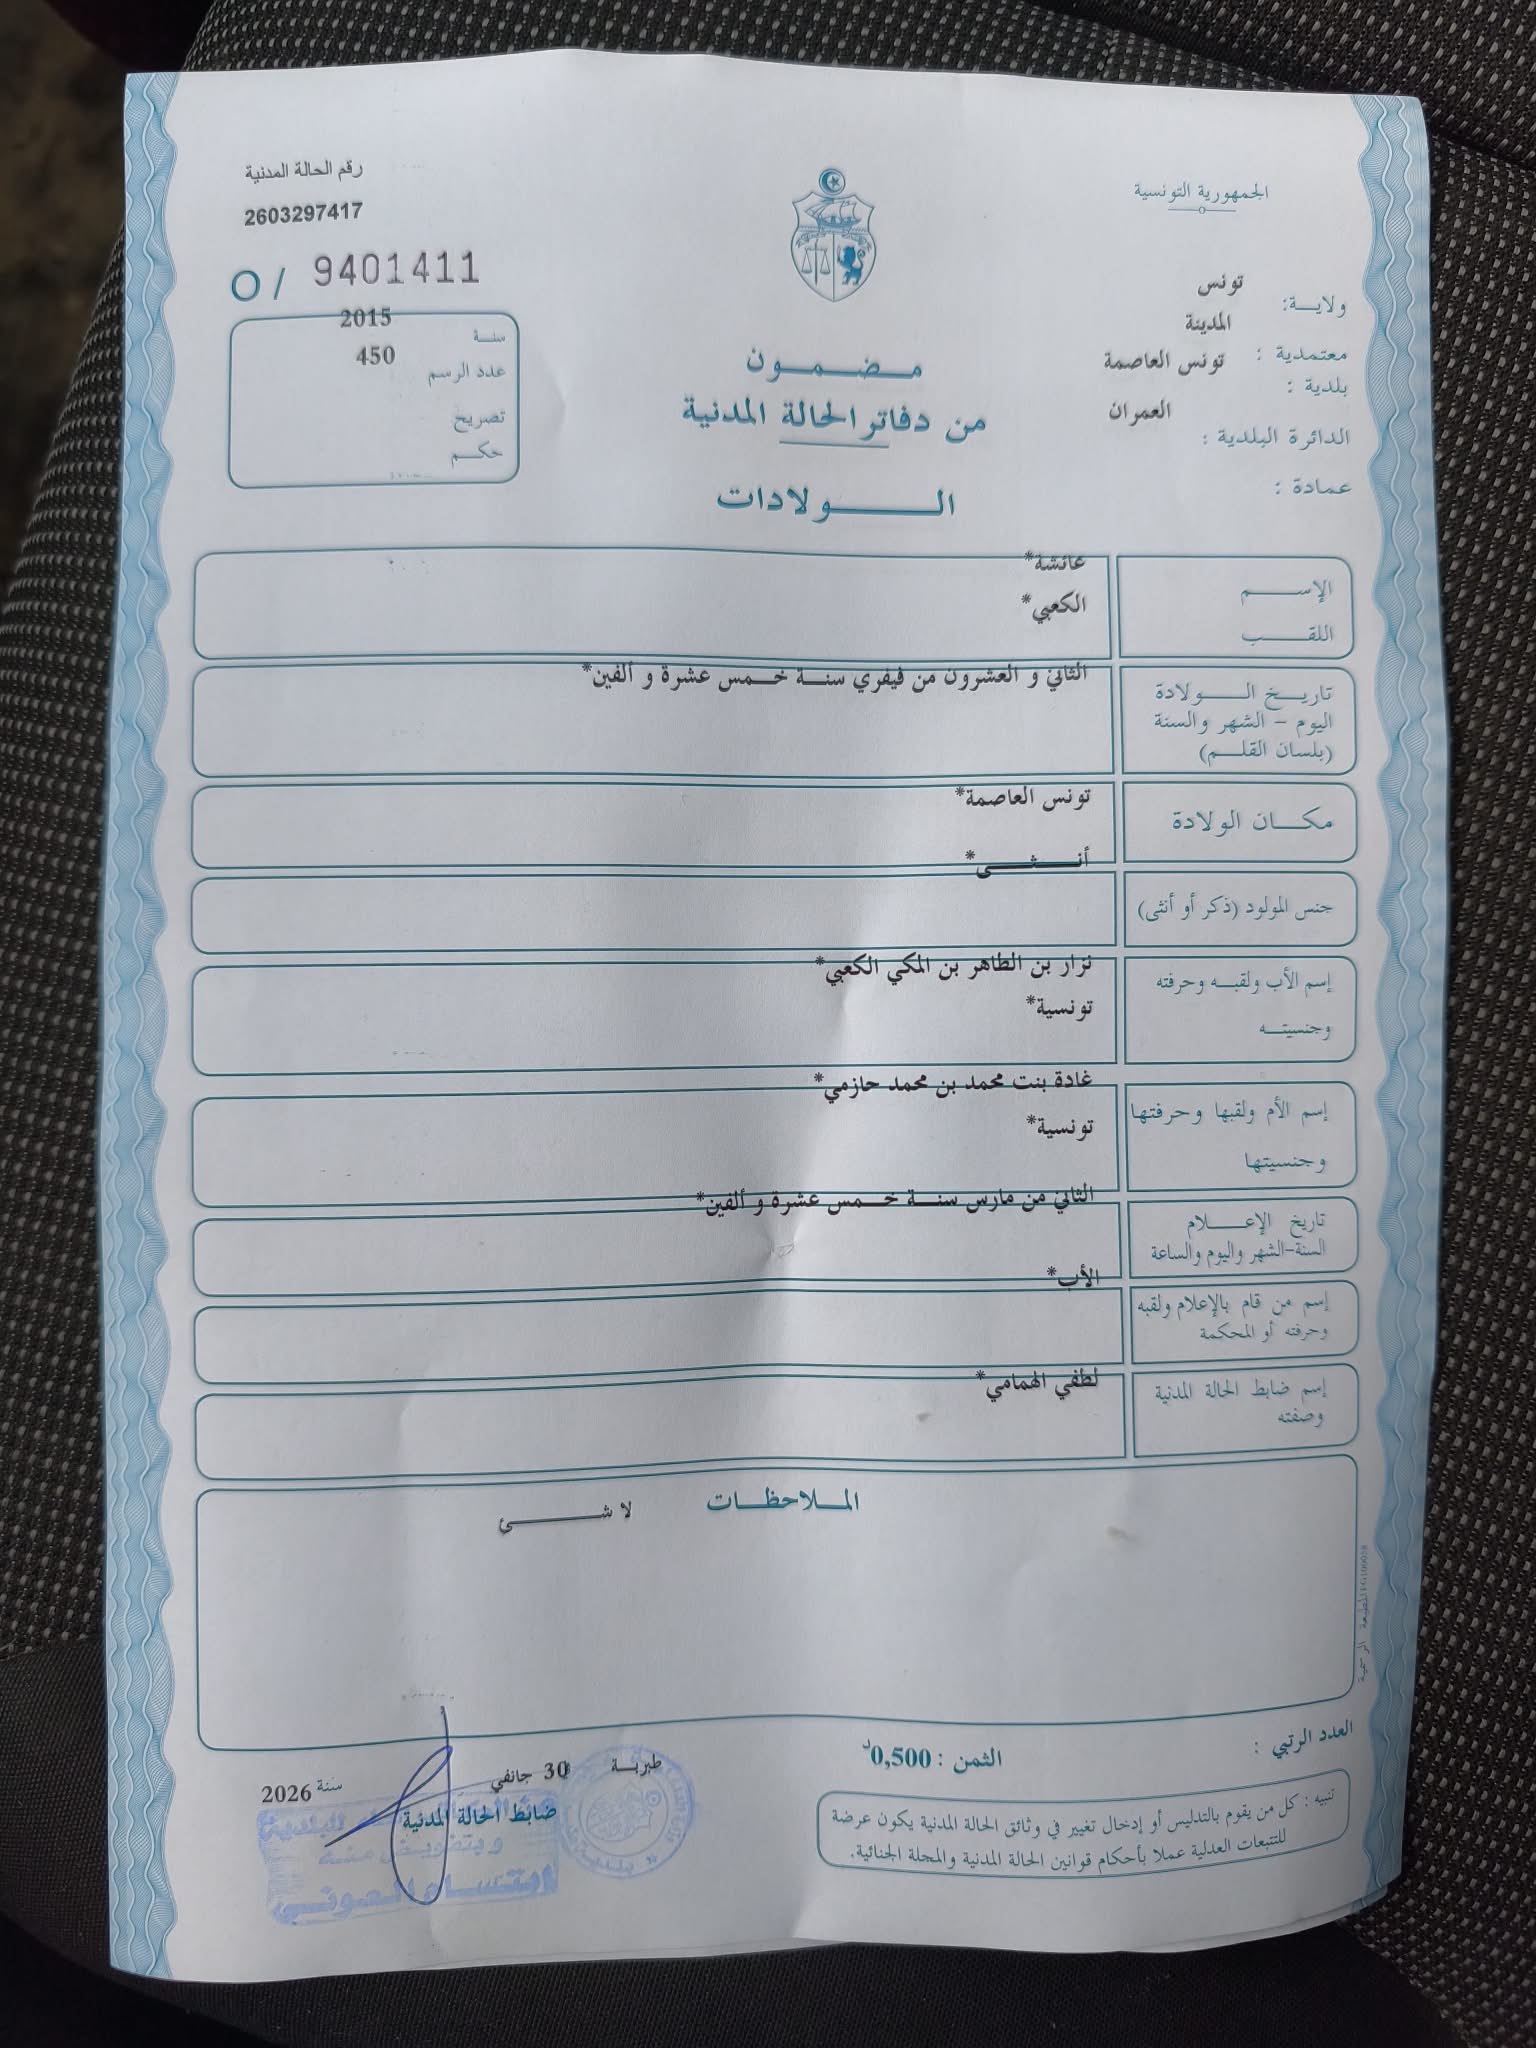 الجمهورية التونسية
رقم الحالة المدنية
2603297417
O / 9401411
ولايـــة: تونس
معتمدية : المدينة
بلدية : تونس العاصمة
الدائرة البلدية : العمران
عمادة :
سنة 2015
عدد الرسم 450
تصريح
حكـــم
مـــضـــمـــون
من دفاتر الحالة المدنية
الـــــولادات
الإســـــم عائشة*
اللقـــــب الكعبي*
تاريـــخ الـــــولادة الثاني و العشرون من فيفري سنـــة خـــمس عشرة و ألفين*
اليوم - الشهر والسنة
(بلسان القلـــم)
مكـــان الولادة تونس العاصمة*
جنس المولود (ذكر أو أنثى) أنـــثـــى*
إسم الأب ولقبـــه وحرفته نزار بن الطاهر بن المكي الكعبي*
وجنسيتـــه تونسية*
إسم الأم ولقبها وحرفتها غادة بنت محمد بن محمد حازمي*
وجنسيتها تونسية*
تاريخ الإعـــــلام الثاني من مارس سنـــة خـــمس عشرة و ألفين*
السنة-الشهر واليوم والساعة
إسم من قام بالإعلام ولقبه الأب*
وحرفته أو المحكمة
إسم ضابط الحالة المدنية لطفي الهمامي*
وصفته
المـــلاحظـــات
لا شـــــئ
المطبعة الرسمية
العدد الرتبي :
الثمن : 0,500د
تنبيه : كل من يقوم بالتدليس أو إدخال تغيير في وثائق الحالة المدنية يكون عرضة
للتتبعات العدلية عملا بأحكام قوانين الحالة المدنية والمجلة الجنائية.
طبربة 30 جانفي سنة 2026
ضابط الحالة المدنية
وبتفويض منه